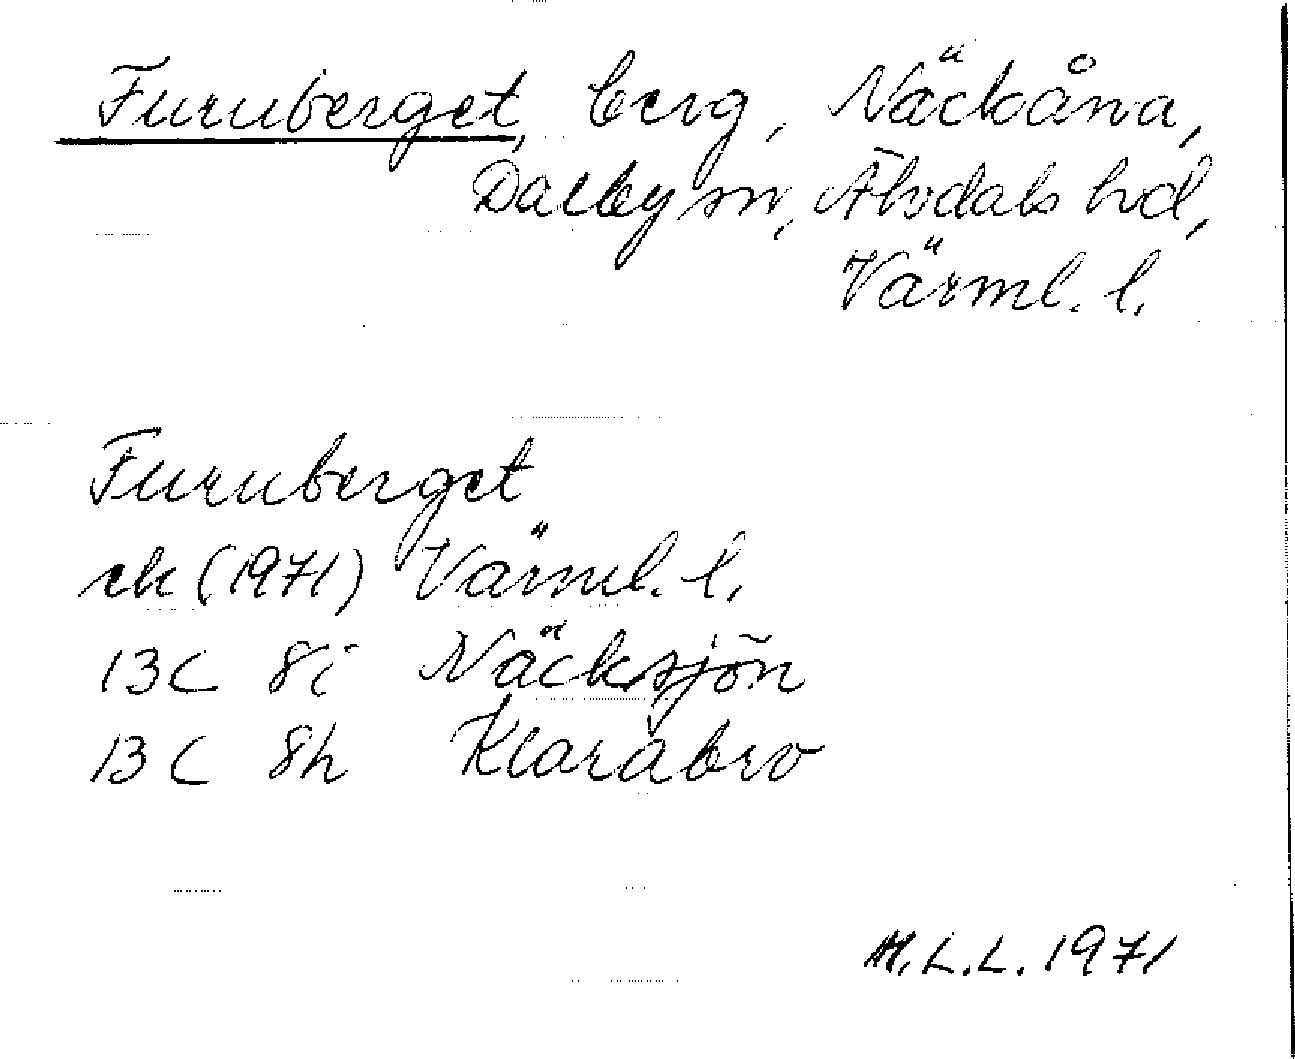 Furuberget, berg, Näckåna,
Dalby sn, Älvdals hd,
Värml. l.
Furuberget
ek (1971) Värml. l.
13C 8i Näcksjön
13C 8h Klarabro
M.L.L. 1971